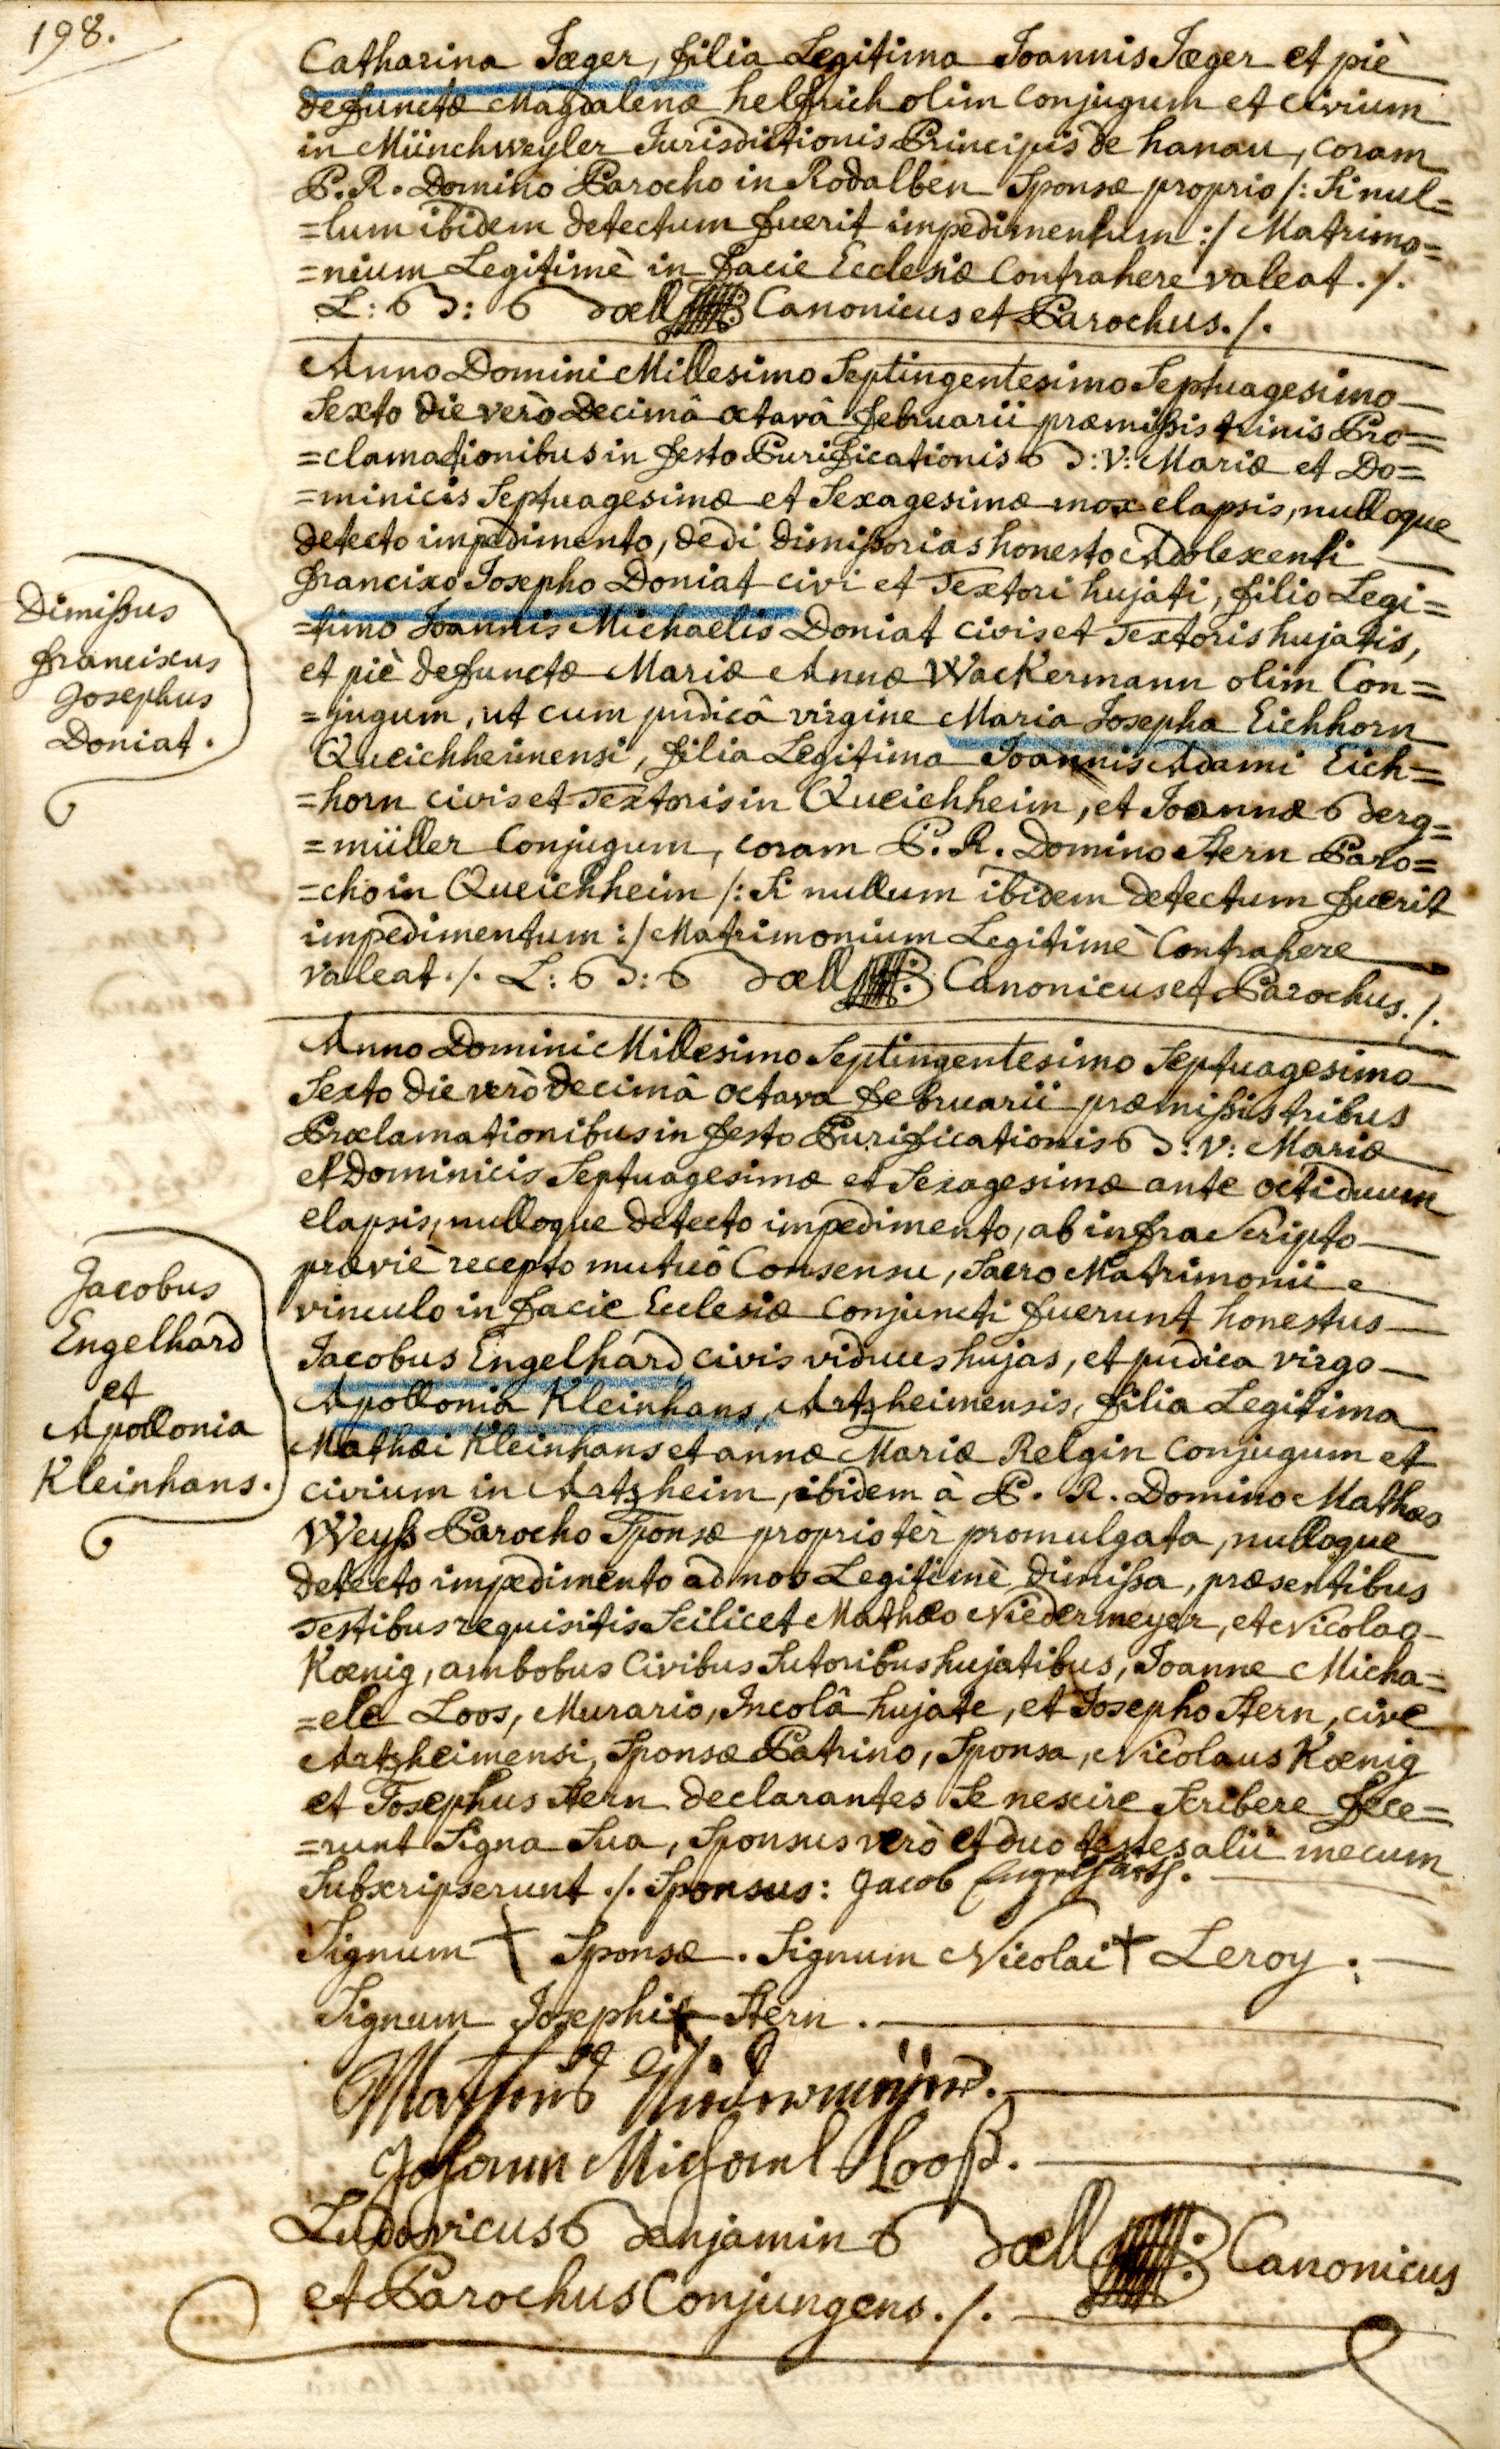 198.
Catharina Jæger, filia Legitima Joannis Jæger et piè
defunctæ Magdalenæ helfrich olim conjugum et civium
in Münchweyler Jurisdictionis Principis de hanau, coram
P. R. Domino Parocho in Rodalben Sponsæ proprio /: Si nul=
=lum ibidem detectum fuerit impedimentum :/ Matrimo=
=nium Legitimè in facie Ecclesiæ Contrahere valeat ./.
L: B: Bœll Canonicus et Parochus ./.
Anno Domini Millesimo Septingentesimo Septuagesimo
Sexto die verò decimâ octavâ februarii præmissis trinis Pro=
=clamationibus in festo Purificationis B: V: Mariæ et Do=
=minicis Septuagesimæ et Sexagesimæ mox elapsis, nulloque
detecto impedimento, dedi dimissorias honesto Adolescenti
francisco Josepho Doniat civi et Textori hujati, filio Legi=
=timo Joannis Michaelis Doniat civis et Textoris hujatis,
et piè defunctæ Mariæ Annæ Wackermann olim Con=
=jugum, ut cum pudicâ virgine Maria Josepha Eichhorn
Queichheimensi, filia Legitima Joannis Adami Eich=
=horn civis et Textoris in Queichheim, et Joannæ Berg=
=müller Conjugum, coram P. R. Domino Stern Paro=
=cho in Queichheim /: Si nullum ibidem detectum fuerit
impedimentum :/ Matrimonium Legitimè Contrahere
valeat ./. L: B: Bœll Canonicus et Parochus ./.
Dimissus
franciscus
Josephus
Doniat.
Anno Domini Millesimo Septingentesimo Septuagesimo
Sexto die verò decimâ octava februarii præmissis tribus
Proclamationibus in festo Purificationis B: V: Mariæ
et Dominicis Septuagesimæ et Sexagesimæ ante octiduum
elapsis, nulloque detecto impedimento, ab infra Scripto
præviè recepto mutuô Consensu, Sacro Matrimonii
vinculo in facie Ecclesiæ conjuncti fuerunt honestus
Jacobus Engelhard civis viduus hujas, et pudica virgo
Apollonia Kleinhans, Artzheimensis, filia Legitima
Mathæi Kleinhans et annæ Mariæ Relgin conjugum et
civium in Artzheim, ibidem à P. R. Domino Mathæo
Weyss Parocho Sponsæ proprio tèr promulgata, nulloque
detecto impedimento ad nos Legitimè dimissa, præsentibus
Testibus requisitis Scilicet Mathæo Niedermeyer, et Nicolao
Kœnig, ambobus Civibus Sutoribus hujatibus, Joanne Micha=
=ele Loos, Murario, Incolâ hujate, et Josepho Stern, cive
Artzheimensi, Sponsæ Patrino, Sponsa, Nicolaus Kœnig
et Josephus Stern declarantes Se nescire Scribere fece=
=runt Signa Sua, Sponsus verò et duo testes alii mecum
Subscripserunt ./. Sponsus: Jacob Engelhardt.
Jacobus
Engelhard
et
Apollonia
Kleinhans.
Signum + Sponsæ. Signum Nicolai + Leroy.
Signum Josephi + Stern.
Mathius Niedermeijer.
Johann Michael Looß.
Ludovicus Benjamin Bœll Canonicus
et Parochus Conjungens ./.